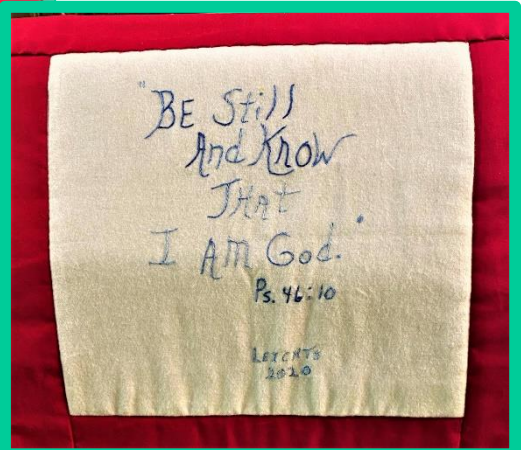 "BE Still
And Know
THAt
I AM God."
Ps. 46:10
2020